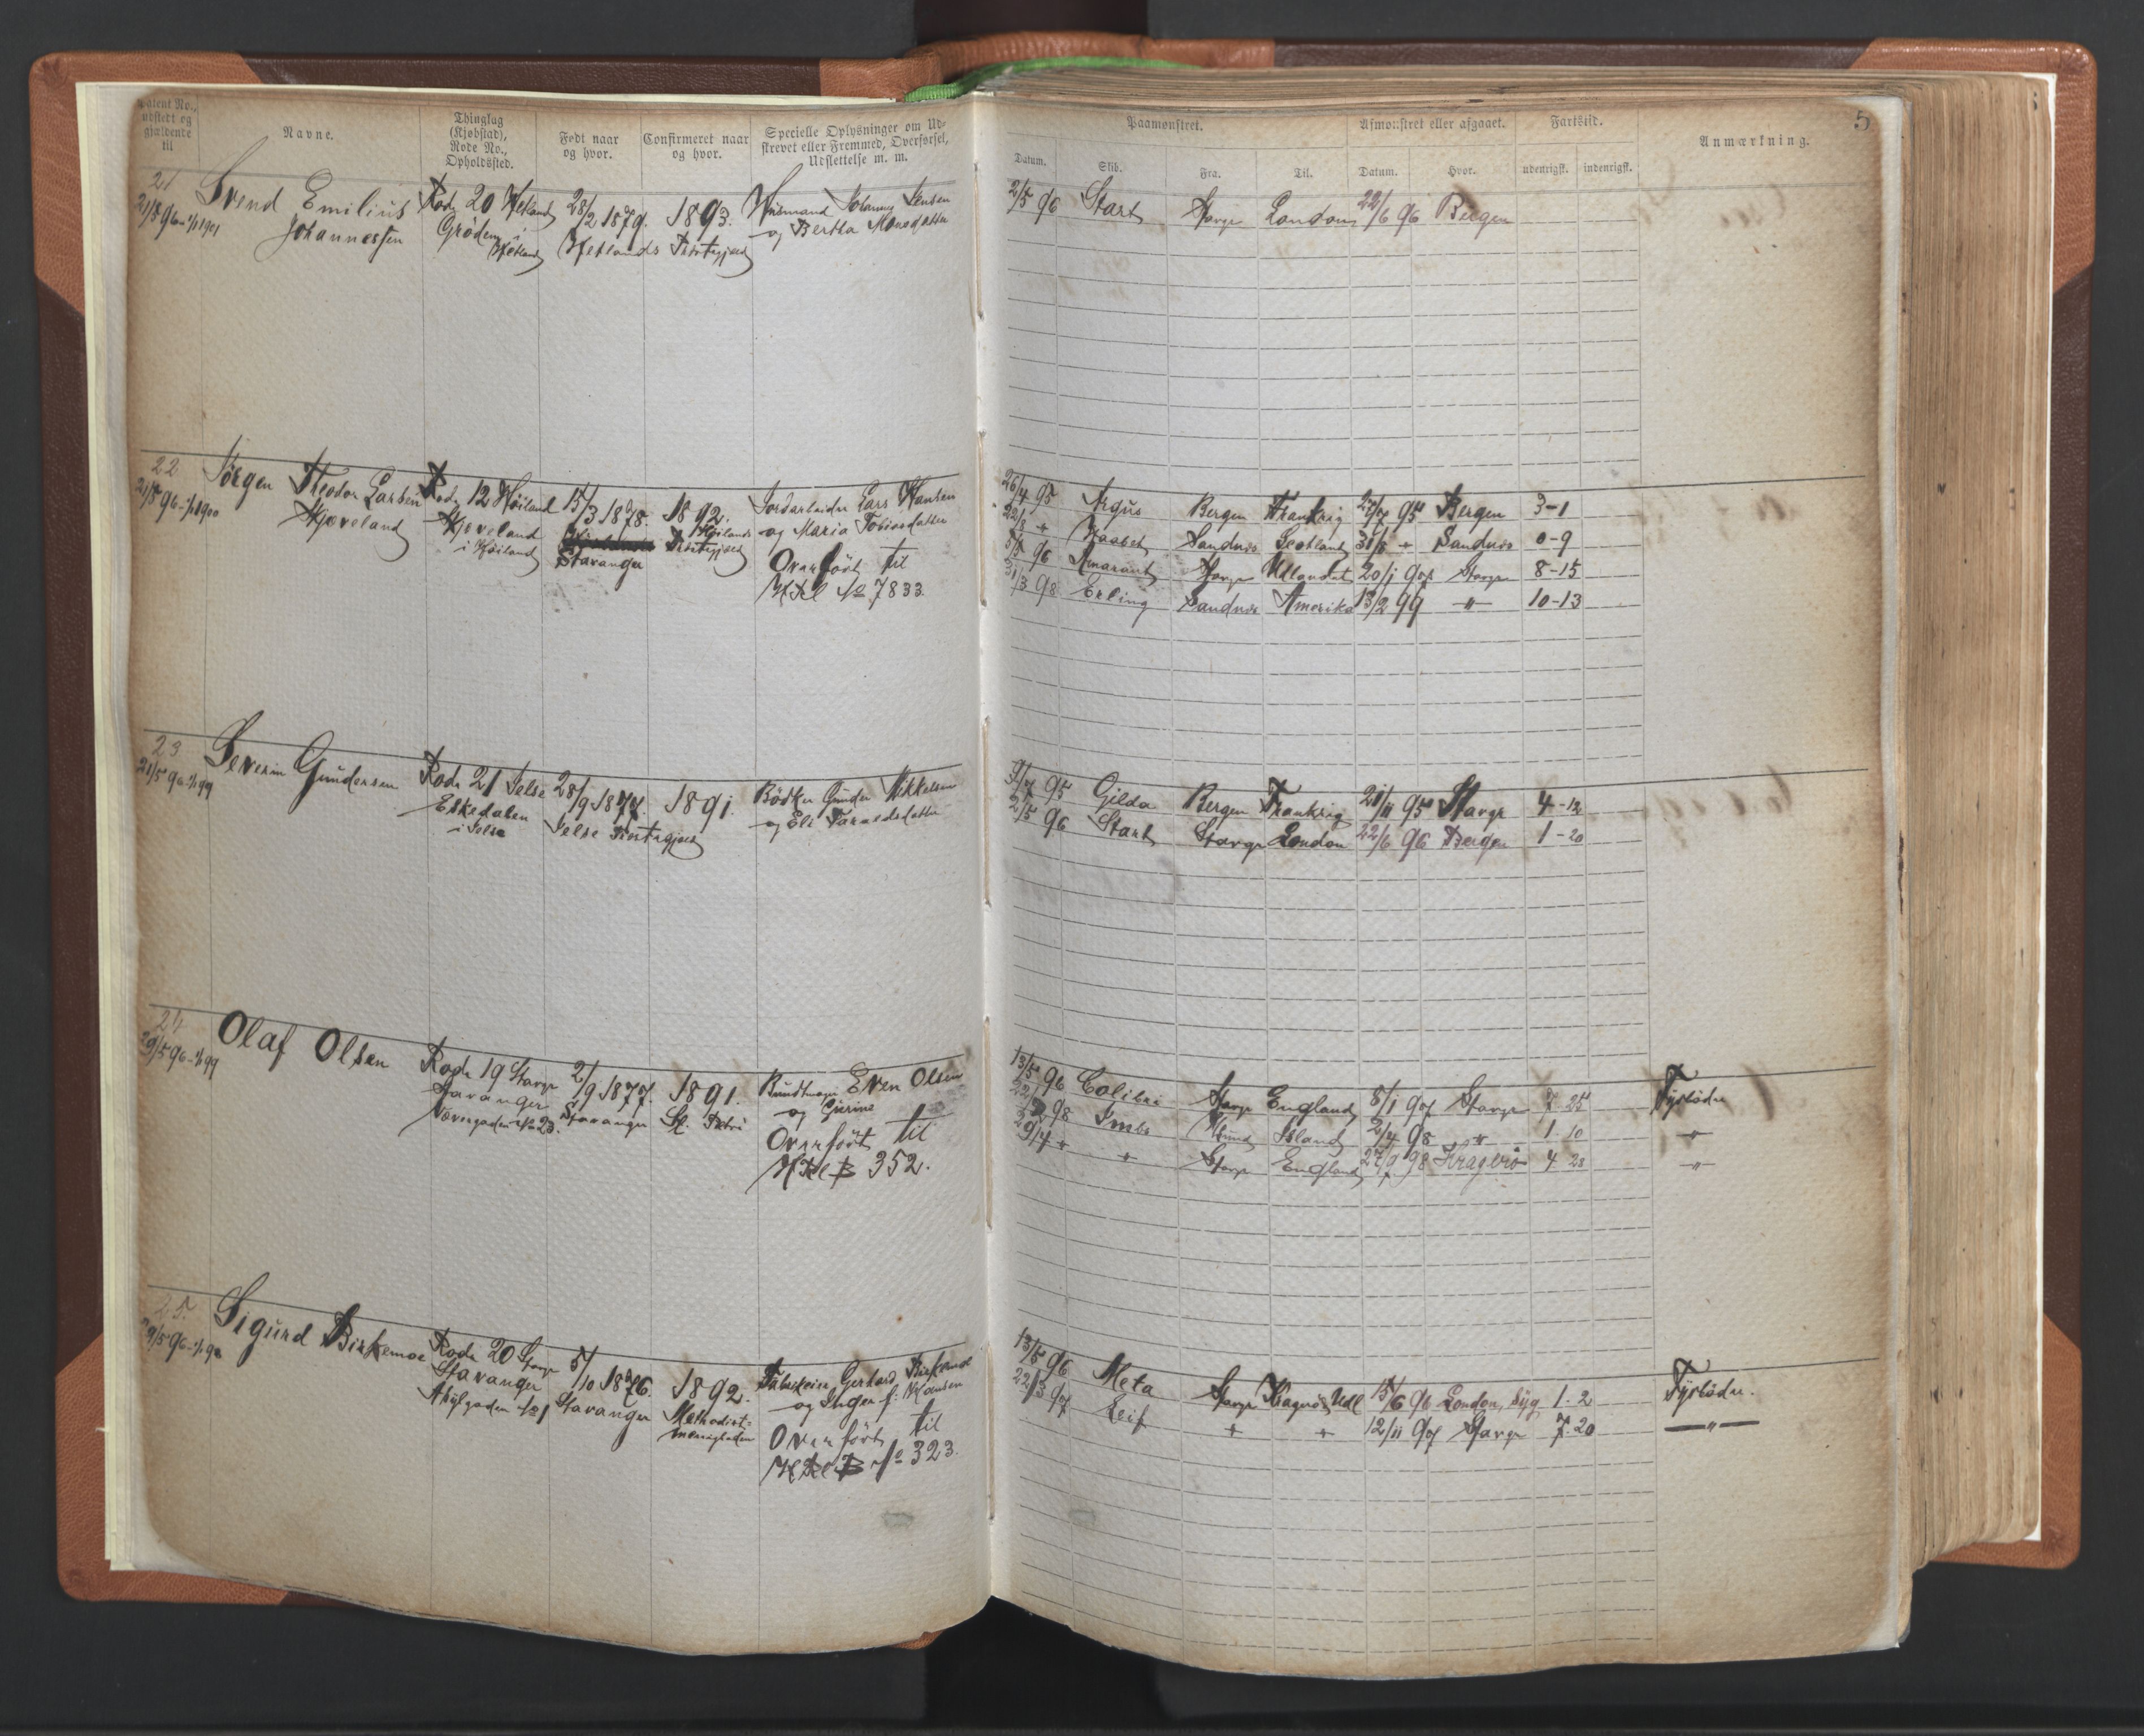 Patent No., udstedt og gjældende til
Navne.
Thinglag (Kjøbstad), Rode No., Opholdssted.
Født naar og hvor.
Confirmeret naar og hvor.
Specielle Oplysninger om Udskrevet eller Fremmed, Overførsel, Udslettelse m. m.
Paamønstret.
Afmønstret eller afgaaet.
Fartstid.
Anmærkning.
5
Datum.
Skib.
Fra.
Til.
Datum.
Hvor.
udenrigsk.
indenrigsk.
21
21/5 96 - 1/1 1901
Svend Emilius
Johannessen
Rode 20 Hetland
Gröden i
Hetland
28/2 1879.
Hetlands Præstegjæld
1893.
Husmand Johannes Jensen
og Bertha Monsdatter
2/5 96 Start Stavgr London 22/6 96 Bergen
22
21/5 96 - 1/1 1900
Jörgen Theodor Larsen
Kjæveland
Rode 12 Høiland
Kjæveland
i Høiland
15/3 1878.
Stavanger
1892.
Høilands
Præstegjæld
Jordarbeider Lars Hansen
og Maria Tobiasdatter
Overført til
HRl No 7833.
26/4 95 Argus Bergen Frankrig 27/7 95 Bergen 3-1
22/8 + Haabet Sandnes Scotland 31/8 + Sandnes 0-9
5/5 96 Amarant Stavgr Udlandet 20/1 97 Stavgr 8-15
31/3 98 Erling Sandnes Amerika 13/2 99 " 10-13
23
21/5 96 - 1/1 99
Severin Gundersen
Rode 21 Jelse
Eskedalen
i Jelse
28/9 1877.
Jelse Præstegjæld
1891.
Bödker Gunder Mikkelsen
og Eli Taraldsdatter
9/7 95 Gilda Bergen Frankrig 21/11 95 Stavgr 4-12
2/5 96 Start Stavgr London 22/6 96 Bergen 1-20
24
29/5 96 - 1/1 99
Olaf Olsen
Rode 19 Stavgr
Stavanger
No 23.
2/9 1877.
Stavanger
1891.
St. Petri
Bundtmager Even Olsen
og Gurine
Overført til
HRl B 352.
13/5 96 Colibri Stavgr England 8/1 97 Stavgr 7 25 Fyrbøder
22/2 98 Imbs Island 2/4 98 " 1 10 "
29/4 + + Stavgr England 27/9 98 Kragerö 4 28 "
25.
29/5 96 - 1/1 98
Sigurd Birkemoe
Rode 20 Stavgr
Stavanger
Asylgaden No 1
5/10 1876.
Stavanger
1892.
Methodist-
menigheden
Fabrikeier Gerhard Birkemoe
og Inger f:
Overført til
HRl B No 323.
13/5 96 Meta Stavgr Kragerö, Udl 15/6 96 London, Syg 1-2 Fyrbøder.
22/3 97 Leif + + 12/11 97 Stavgr 7-20 "